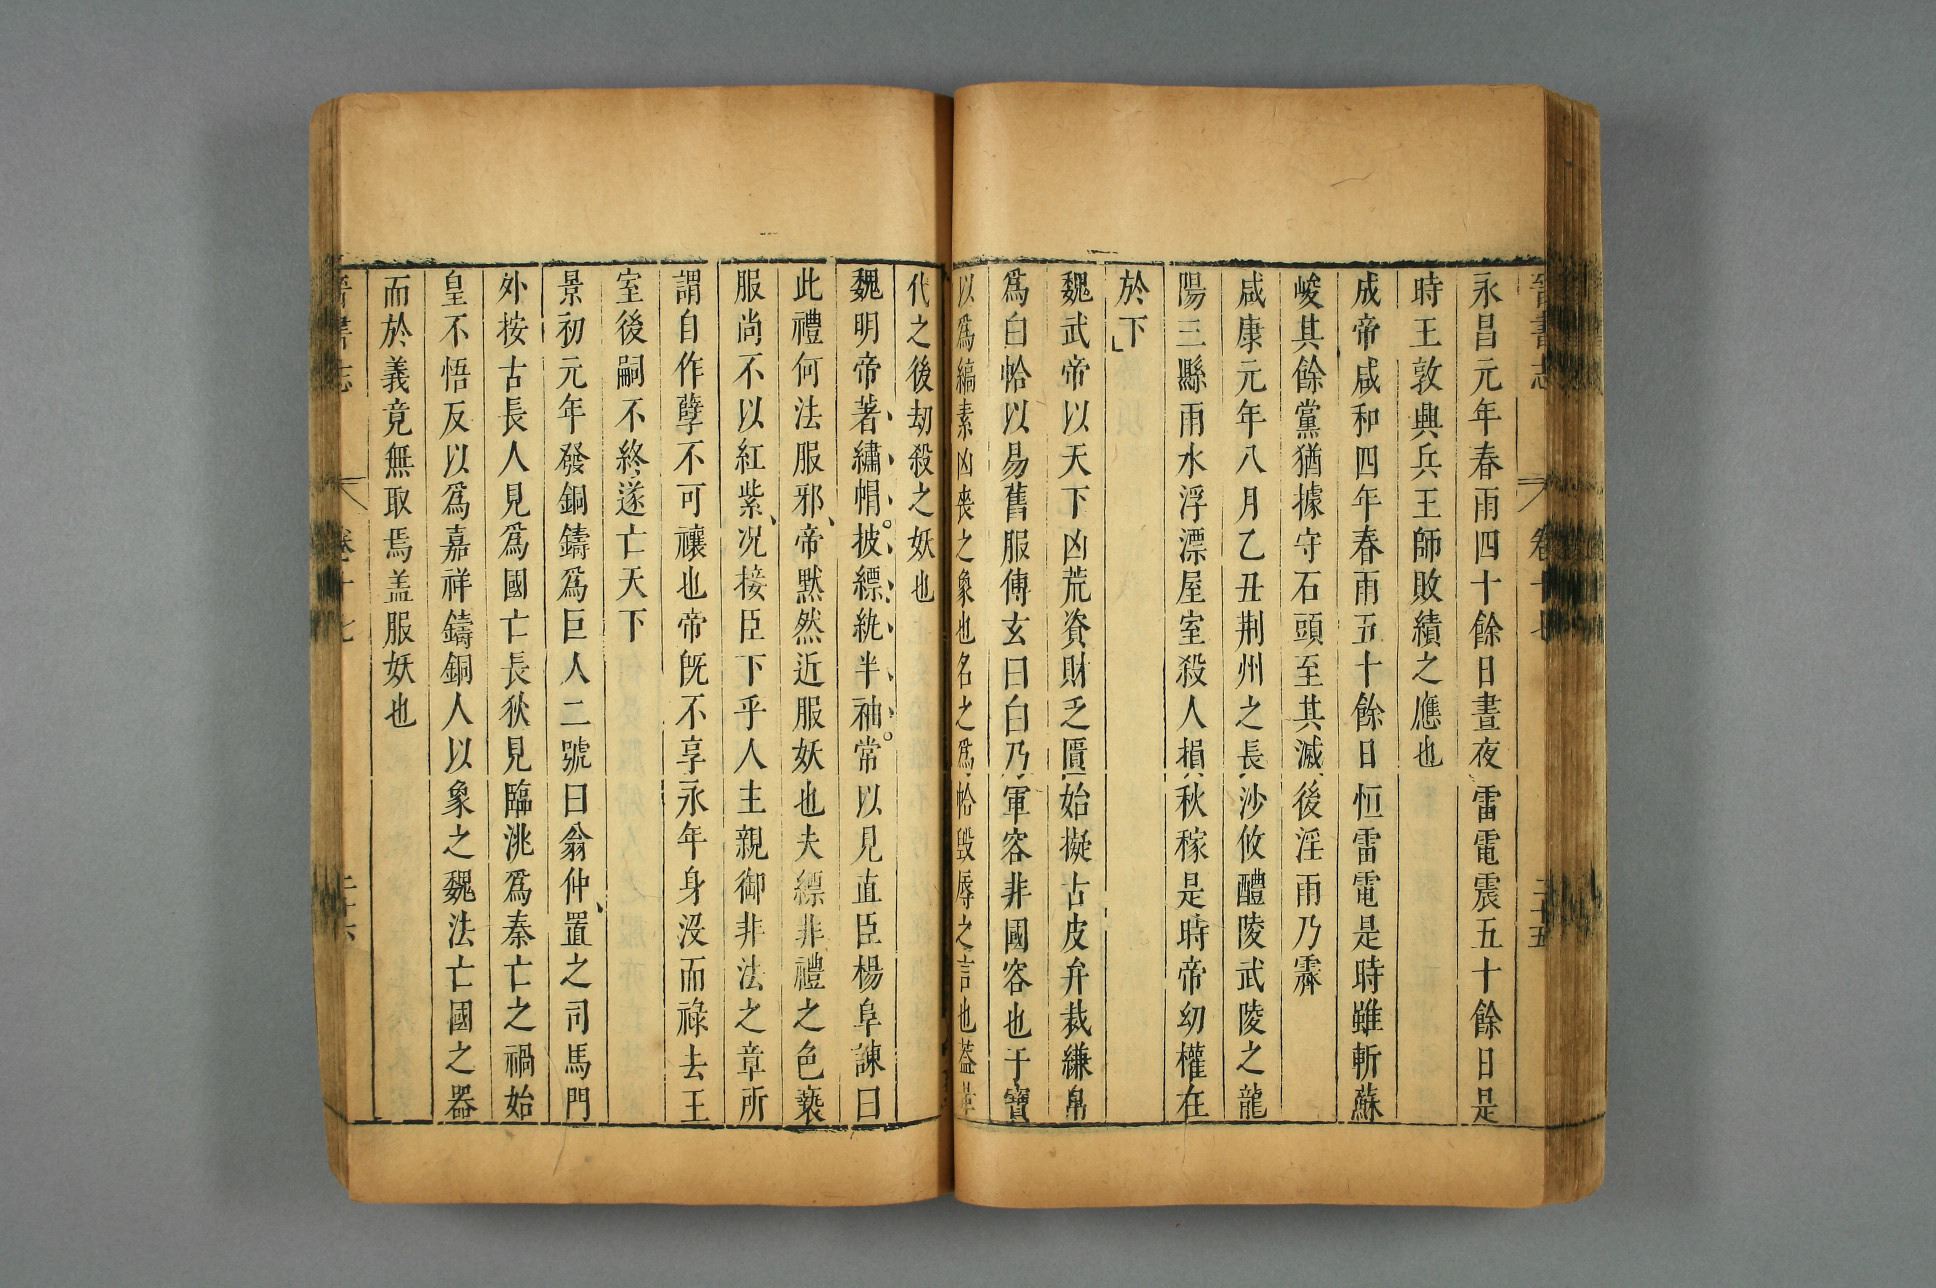 晉書志 卷十七 二十五
永昌元年春雨四十餘日晝夜雷電震五十餘日是
時王敦興兵王師敗績之應也
成帝咸和四年春雨五十餘日恒雷電是時雖斬蘇
峻其餘黨猶據守石頭至其滅後淫雨乃霽
咸康元年八月乙丑荆州之長沙攸醴陵武陵之龍
陽三縣雨水浮漂屋室殺人損秋稼是時帝幼權在
於下
魏武帝以天下凶荒資財乏匱始擬古皮弁裁縑帛
爲白帢以易舊服傅玄曰白乃軍容非國容也干寶
以爲縞素凶喪之象也名之爲帢毀辱之言也蓋革
代之後劫殺之妖也
魏明帝著繡帽披縹紈半袖常以見直臣楊阜諫曰
此禮何法服邪帝默然近服妖也夫縹非禮之色褻
服尚不以紅紫况接臣下乎人主親御非法之章所
謂自作孽不可禳也帝旣不享永年身沒而祿去王
室後嗣不終遂亡天下
景初元年發銅鑄爲巨人二號曰翁仲置之司馬門
外按古長人見爲國亡長狄見臨洮爲秦亡之禍始
皇不悟反以爲嘉祥鑄銅人以象之魏法亡國之器
而於義竟無取焉盖服妖也
晉書志 卷十七 二十六